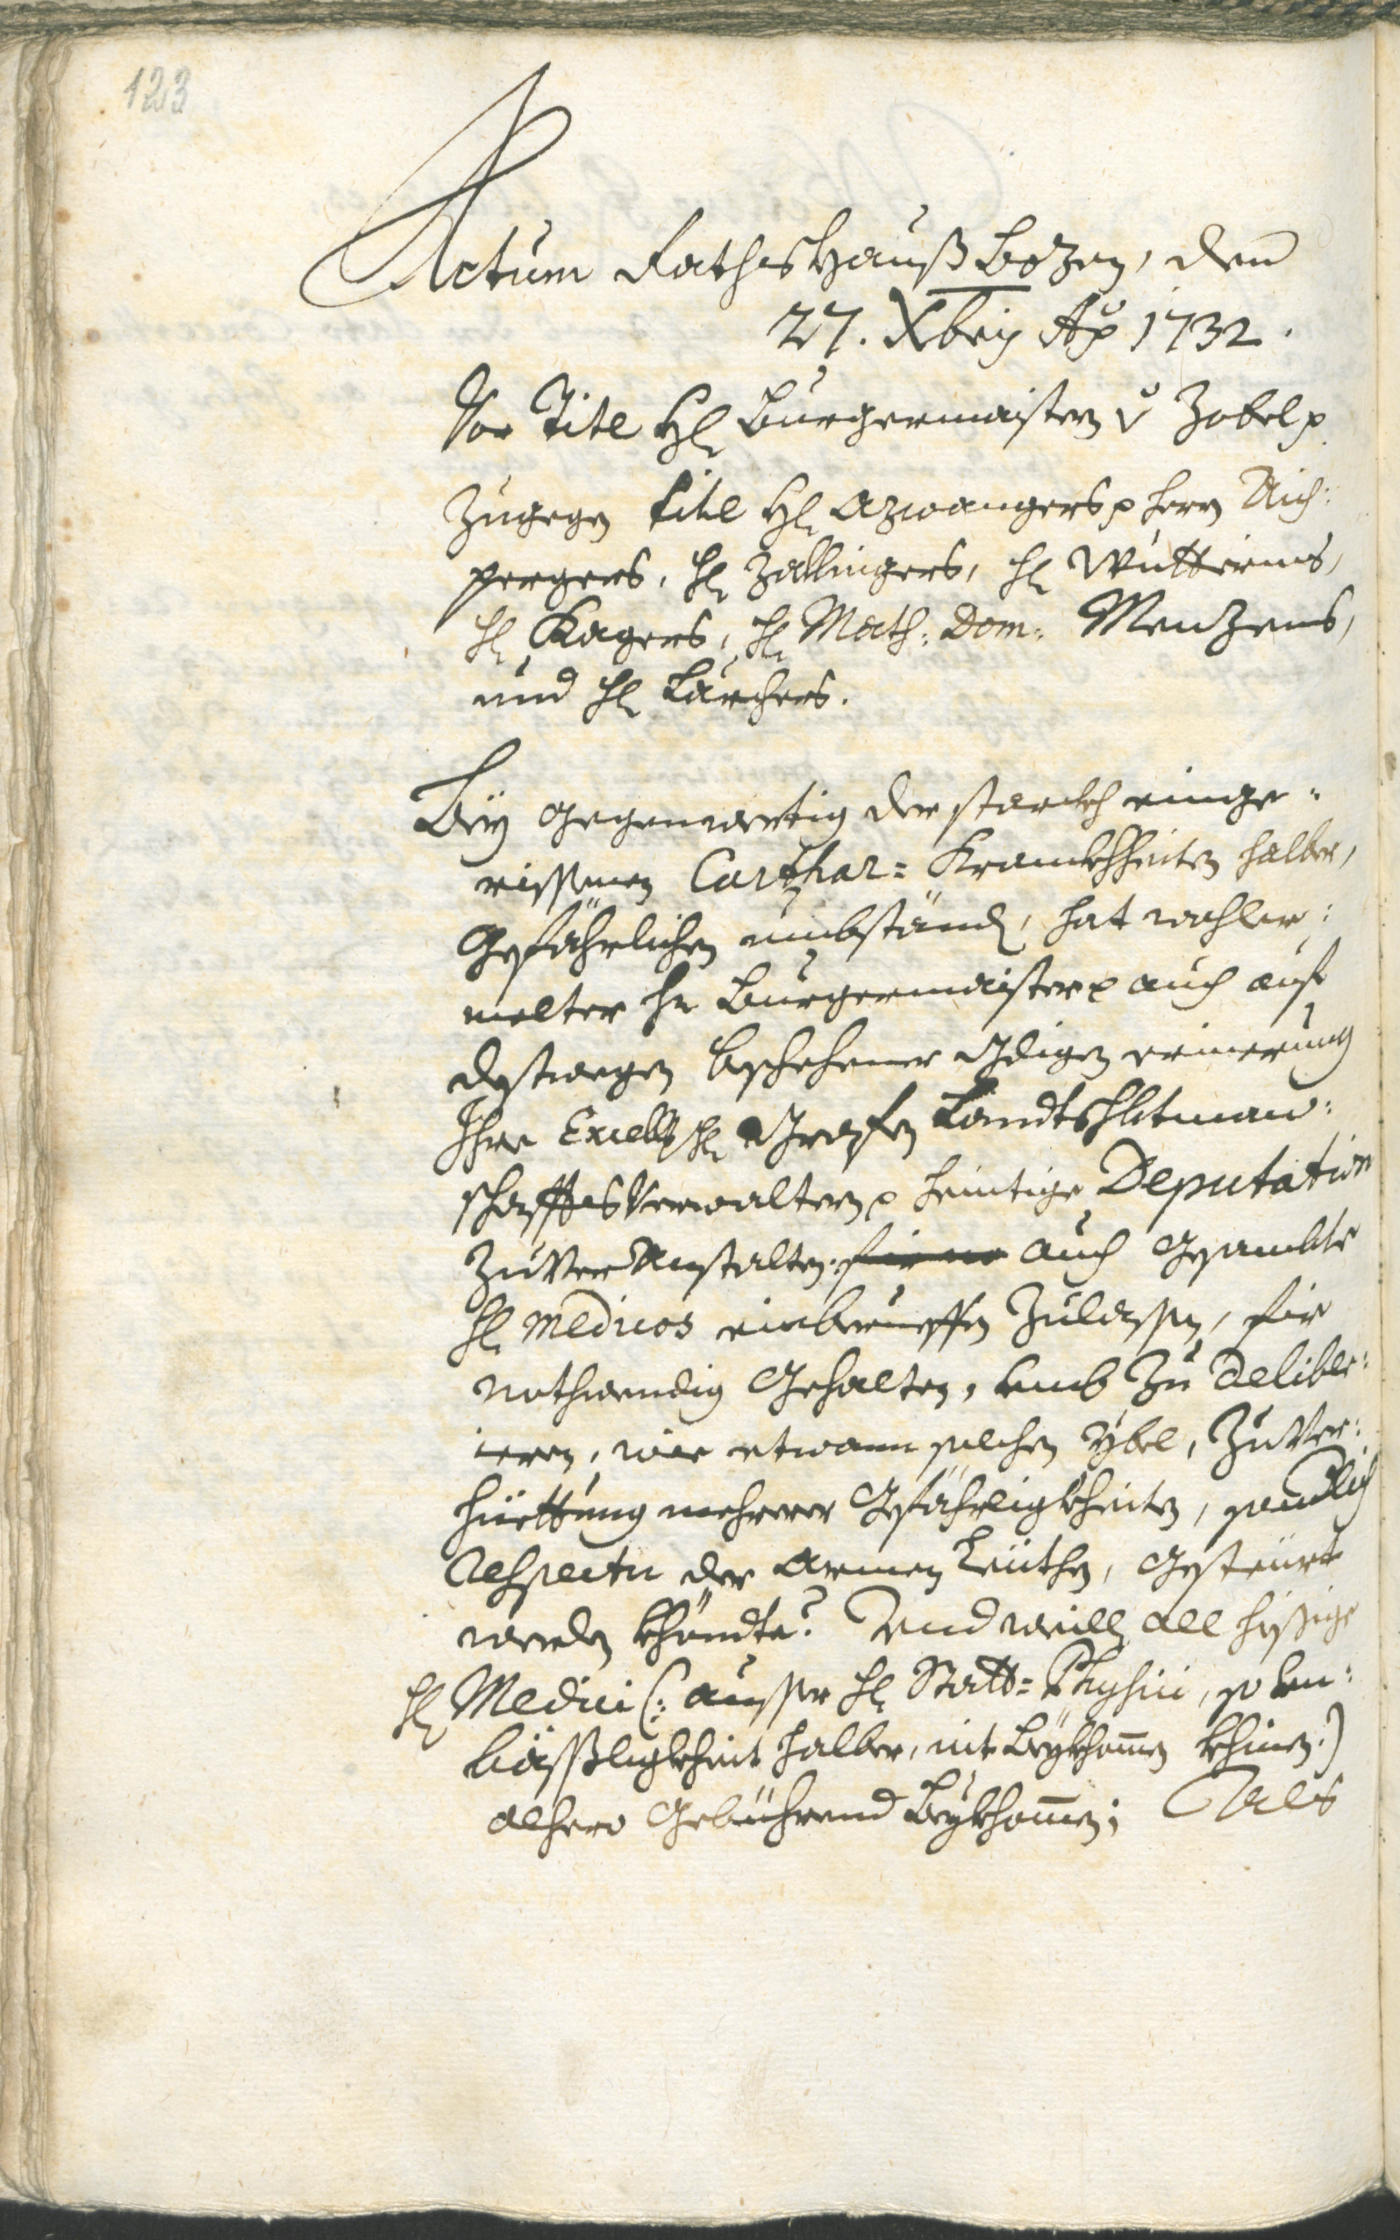 123
Actum Rathshauß Bozen, den
27. Xbris Ao 1732.
Vor Titl Hl Burgermaistern v Zobel p
Zugegen titl Hl Azwangers p herrn Aich:
pergers, Hl Zallingers, Hl Wutterins,
Hl Kagers, Hl Math: Dom: Menzens,
und Hl Larchers.
Bey gegenwertig der starckh einge=
rissenen Carthar= Kranckhheiten halber,
Gefährlichen umbständ, hat wohler:
melter Hr Burgermaister p auch auf
destwegen beschehener gdigen erinerung
Ihro Excell Hl Grafen Landtshbtman:
schafftsVerwaltern p heintige Deputation
ZuVerAnstalten, auch Gesambte
Hl Medicos einberueffen Zulassen, für
nothwendig Gehalten, umb Zu delibe:
ieren, wie etwann solchen ybel, ZuVer:
hüettung mehrerer Gefährligkheiten, sonderlich
Respectu der Armen Leüthen, Gesteurt
werden khöndte? Und weill all hiesige
Hl Medici (: ausser Hl Statt= Physici, so Un:
bässligkheit halber, nit beykhomen khinen:)
alhero Gebührend beykhomen; Als